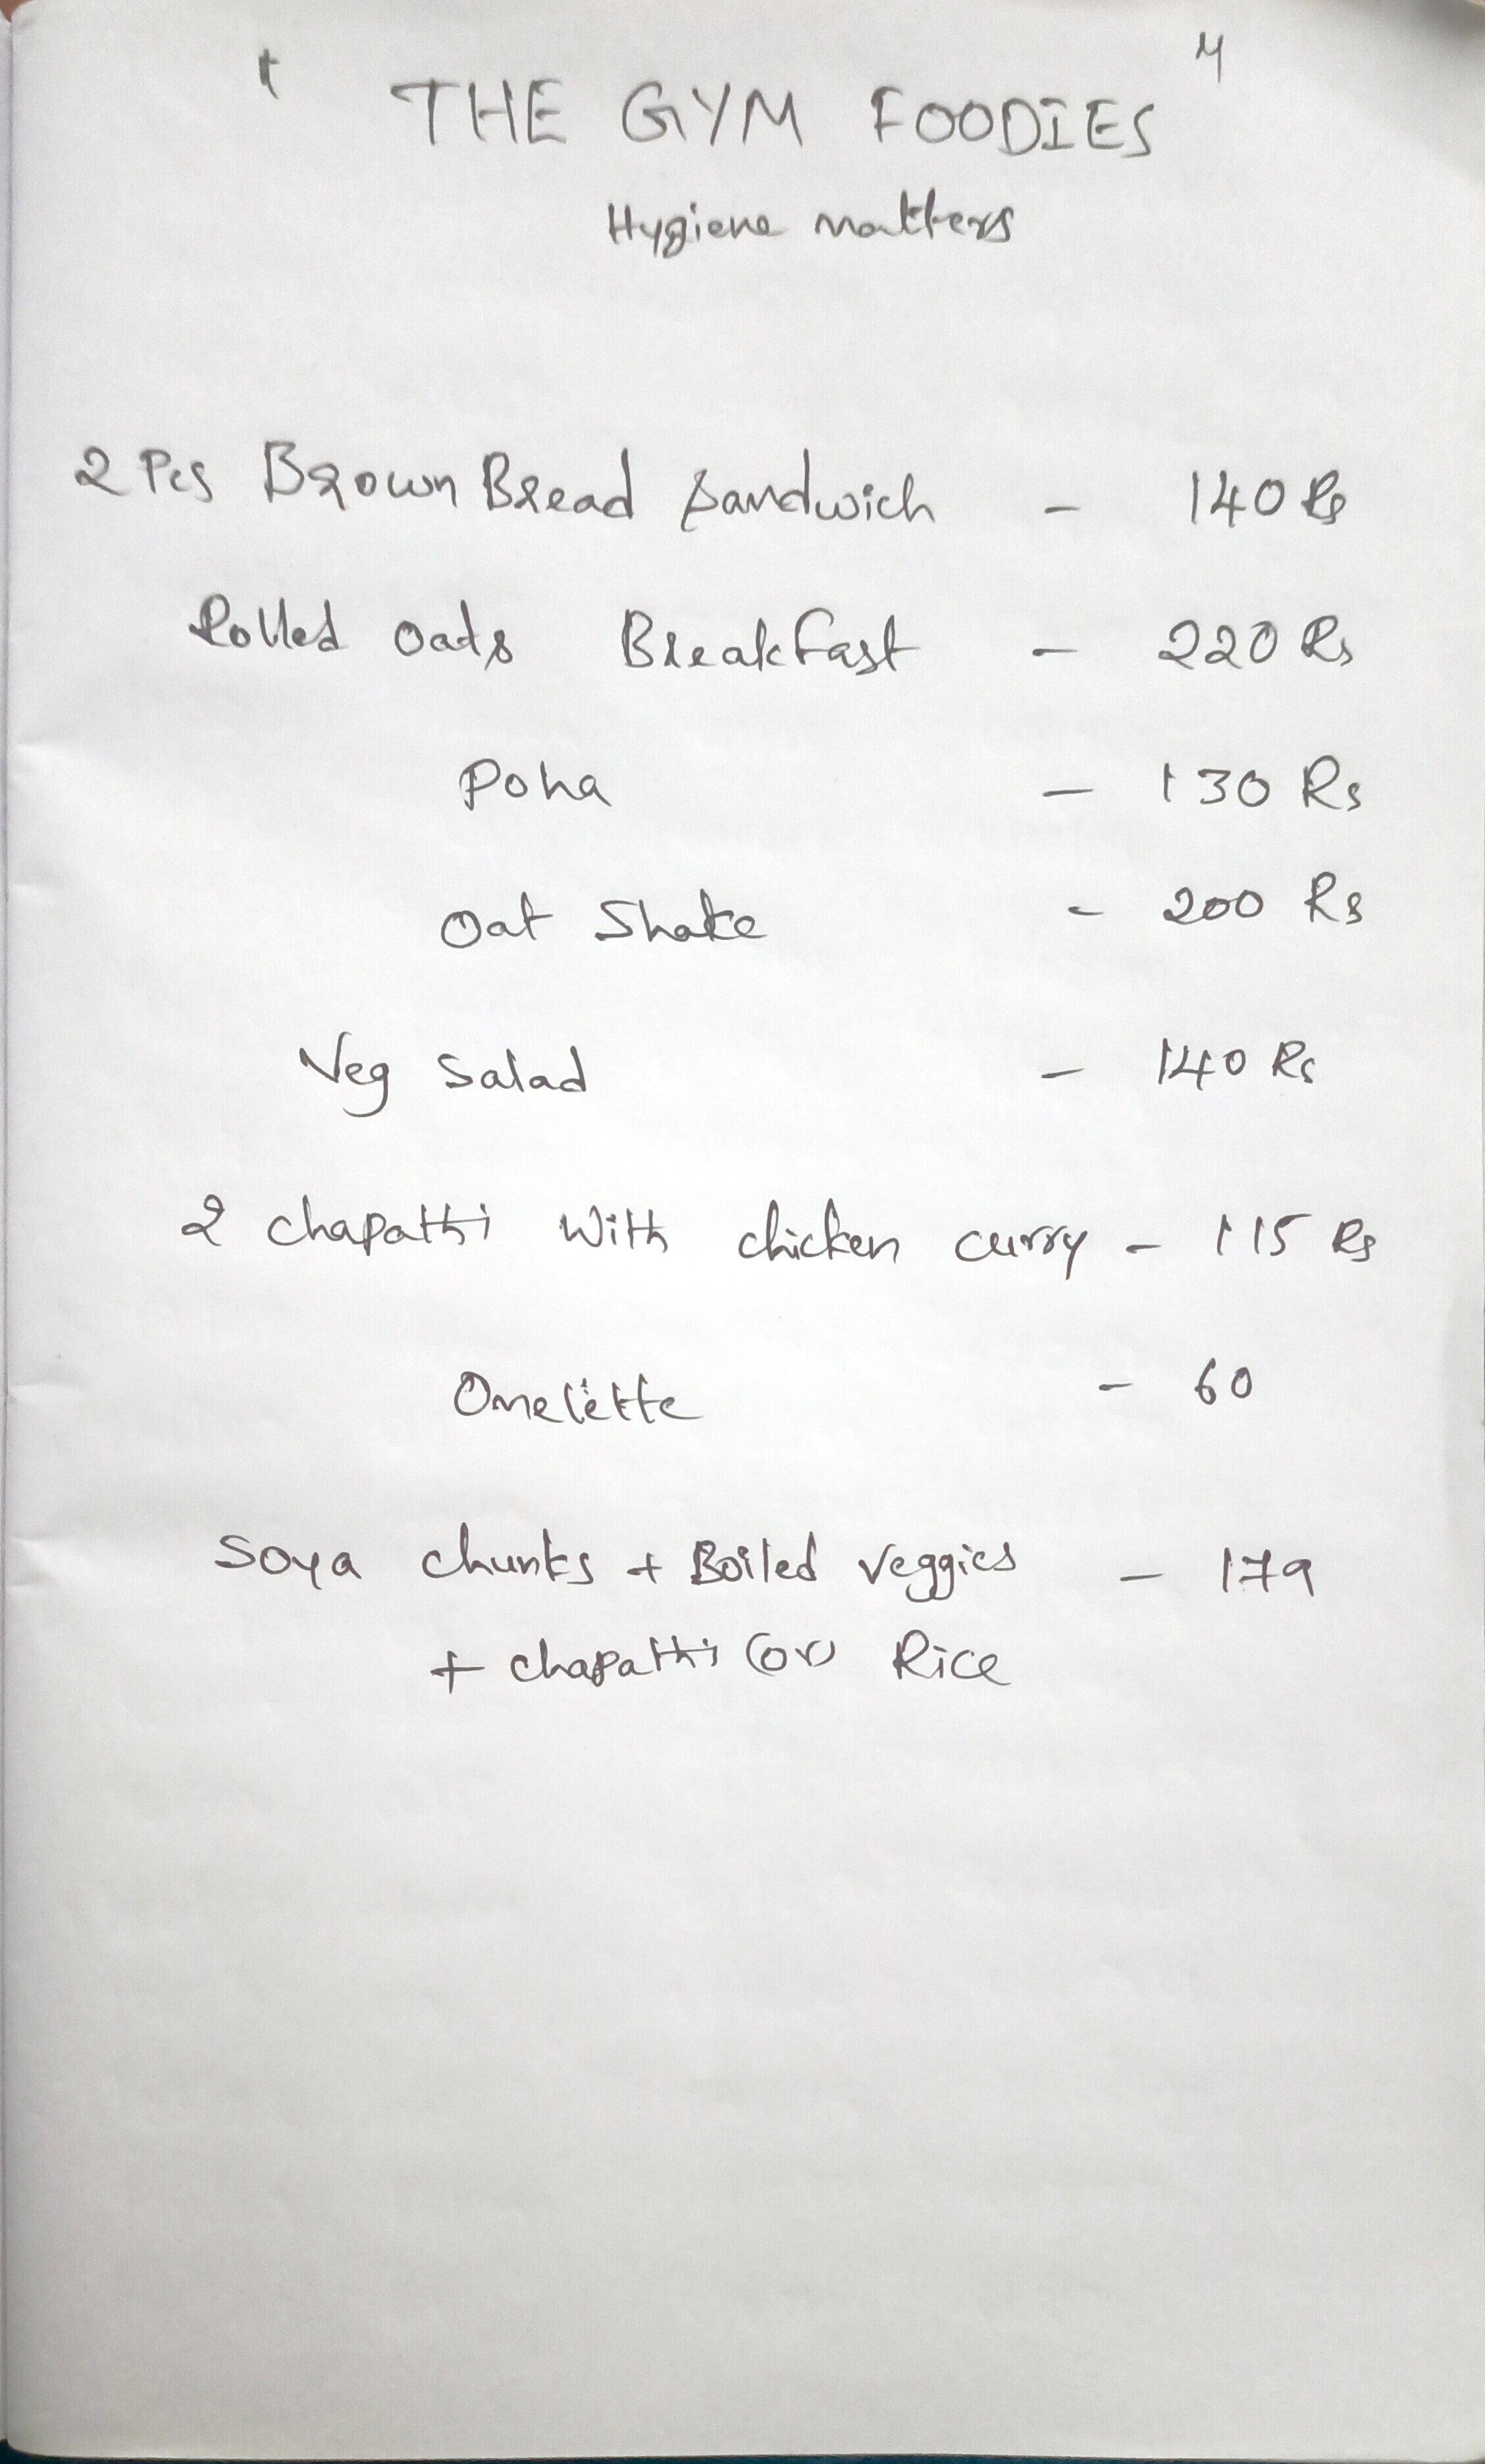 " THE GYM FOODIES "
Hygiene matters
2 Pcs Brown Bread Sandwich - 140 Rs
Rolled Oats Breakfast - 220 Rs
Poha - 130 Rs
Oat Shake - 200 Rs
Veg Salad - 140 Rs
2 chapatti With chicken curry - 115 Rs
Omelette - 60
Soya chunks + Boiled Veggies - 179
+ chapatti (or) Rice